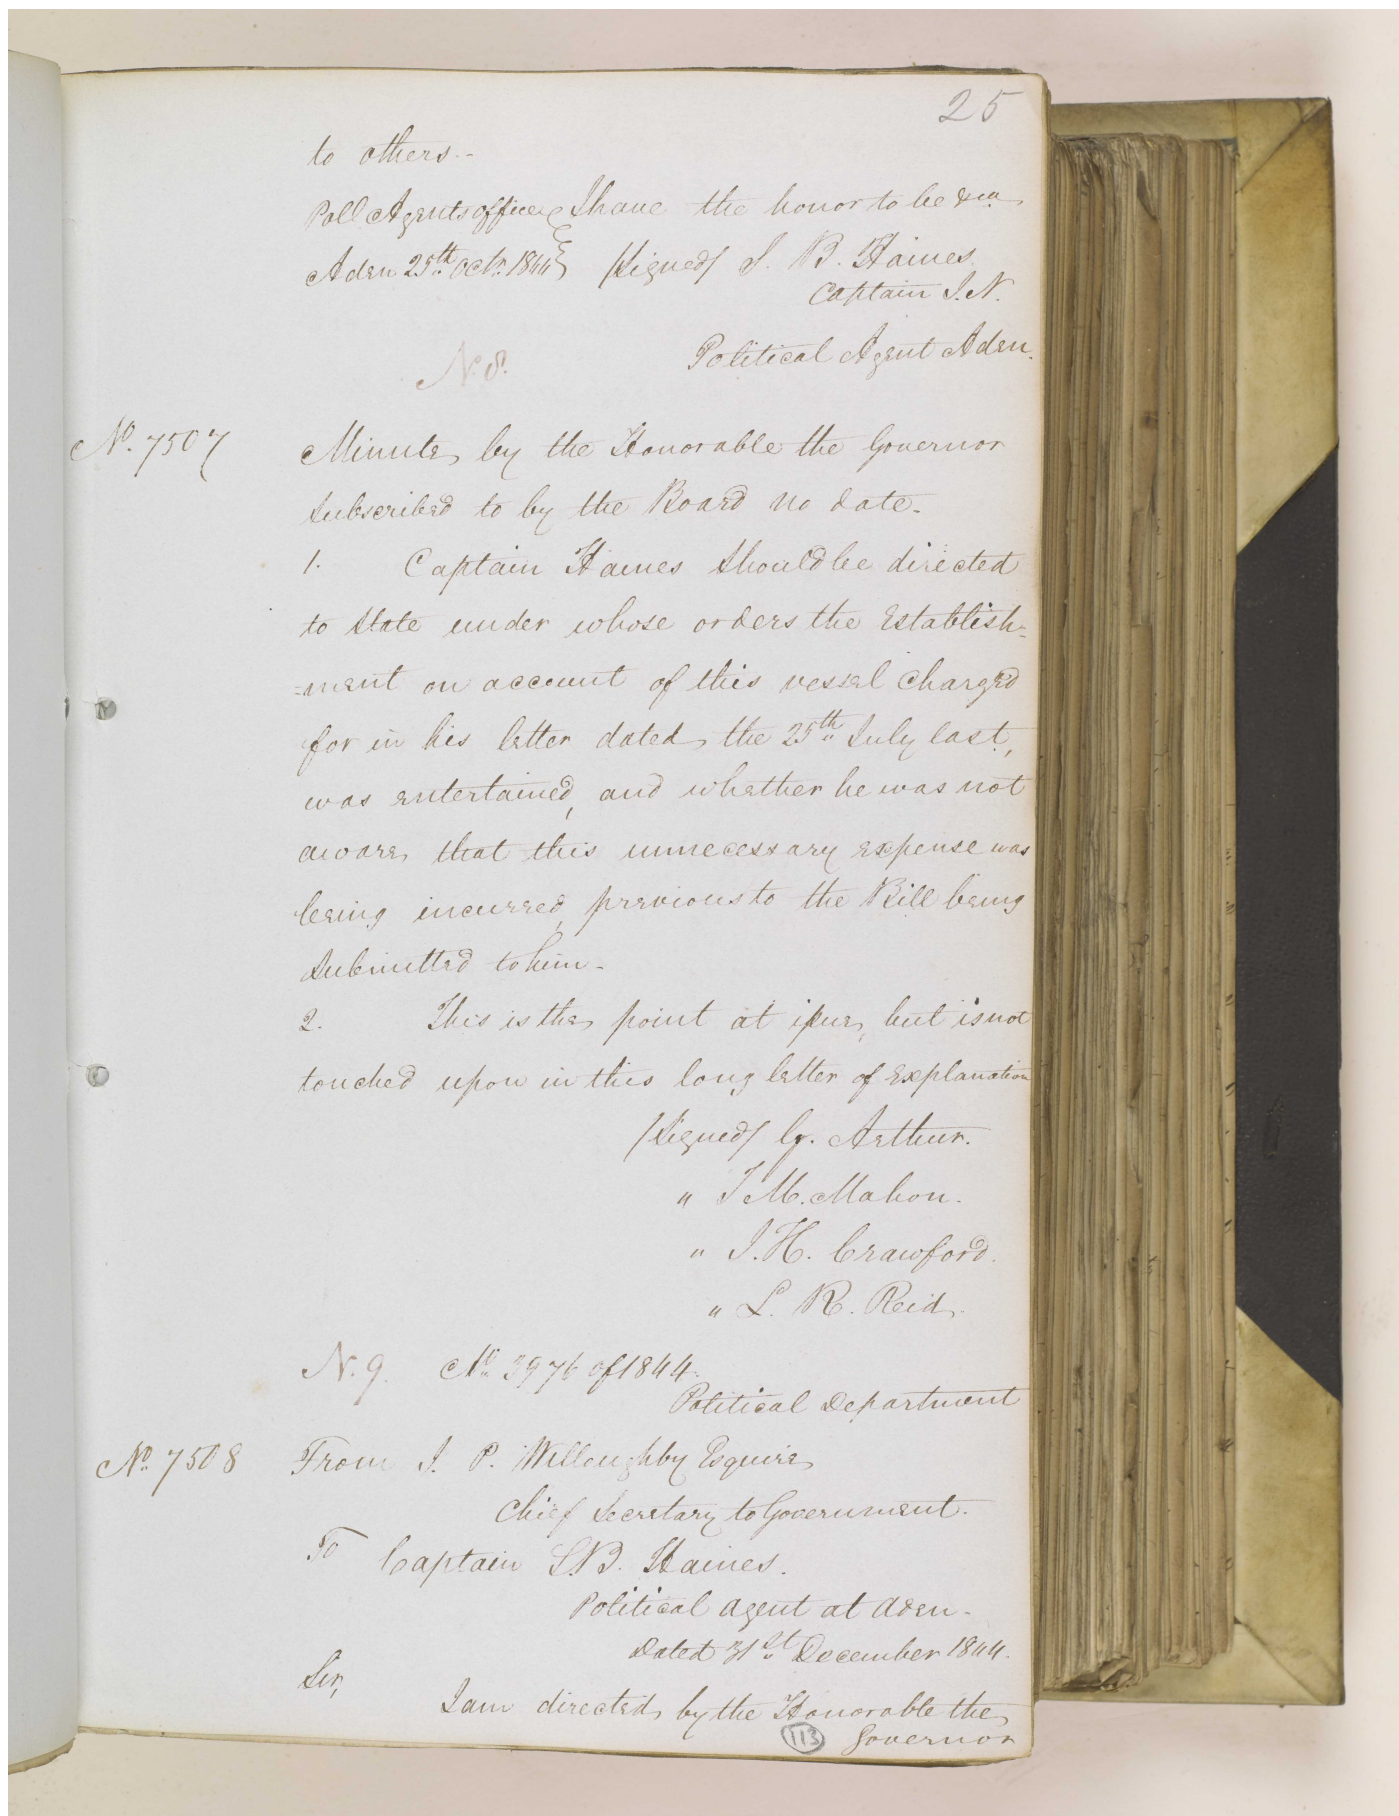 25
to others.-
Poll Agents office I have the honor to be &ca
Aden 25th Octr. 1844 /Signed/ S. B. Haines
Captain I.N.
Political Agent Aden.
No. 8.
No. 7507 Minute by the Honorable the Governor
subscribed to by the Board no date.
1. Captain Haines should be directed
to state under whose orders the Establish=
=ment on account of this vessel charged
for in his letter dated the 25th July last,
was entertained, and whether he was not
aware that this unnecessary expense was
being incurred, previous to the Bill being
submitted to him-
2. This is the point at issue, but is not
touched upon in this long letter of explanation
/Signed/ G. Arthur.
" T M. Mahon.
" J. H. Crawford.
" L. R. Reid.
N. 9. No. 3976 of 1844.
Political Department
No. 7508 From J. P. Willoughby Esquire
Chief Secretary to Government.
To Captain S.B. Haines.
Political Agent at Aden-
Dated 31st December 1844.
Sir,
I am directed by the Honorable the
113 Governor